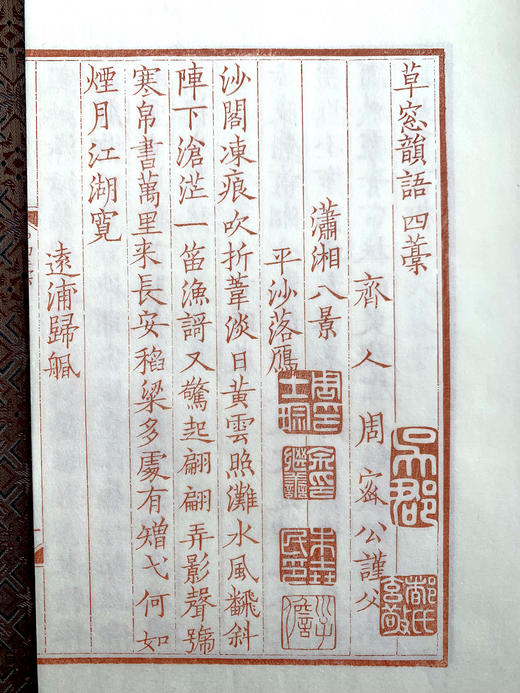 草窓韻語四藁
齊人周密公謹父
瀟湘八景
平沙落鴈
沙閣凍痕吹折葦淡日黃雲照灘水風飜斜
陣下滄茫一笛漁謌又驚起翩翩弄影聲號
寒帛書萬里来長安稻粱多處有矰弋何如
煙月江湖寛
遠浦歸颿
吳郡
都氏玄敬